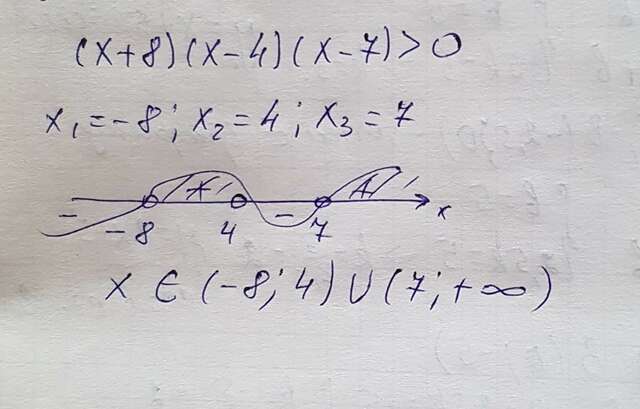 (x+8)(x-4)(x-7)>0
x₁=-8; x₂=4; x₃=7
- + - + x
-8 4 7
x ∈ (-8; 4) ∪ (7; +∞)